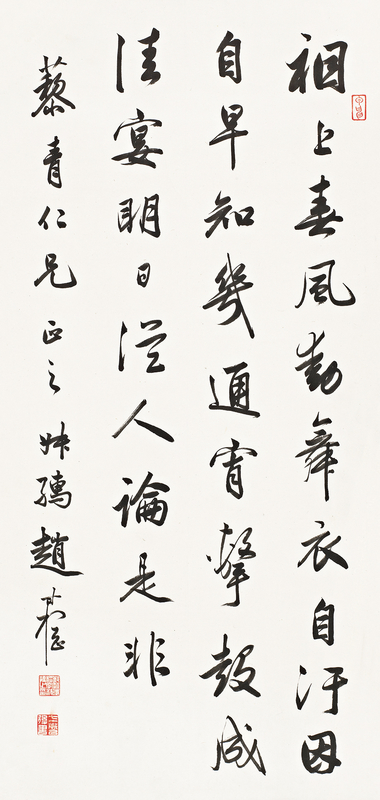 裀上春風動舞衣自汙因
自早知幾通宵擊鼓成
佳宴明日從人論是非
藜青仁兄正之 叔孺趙時棡